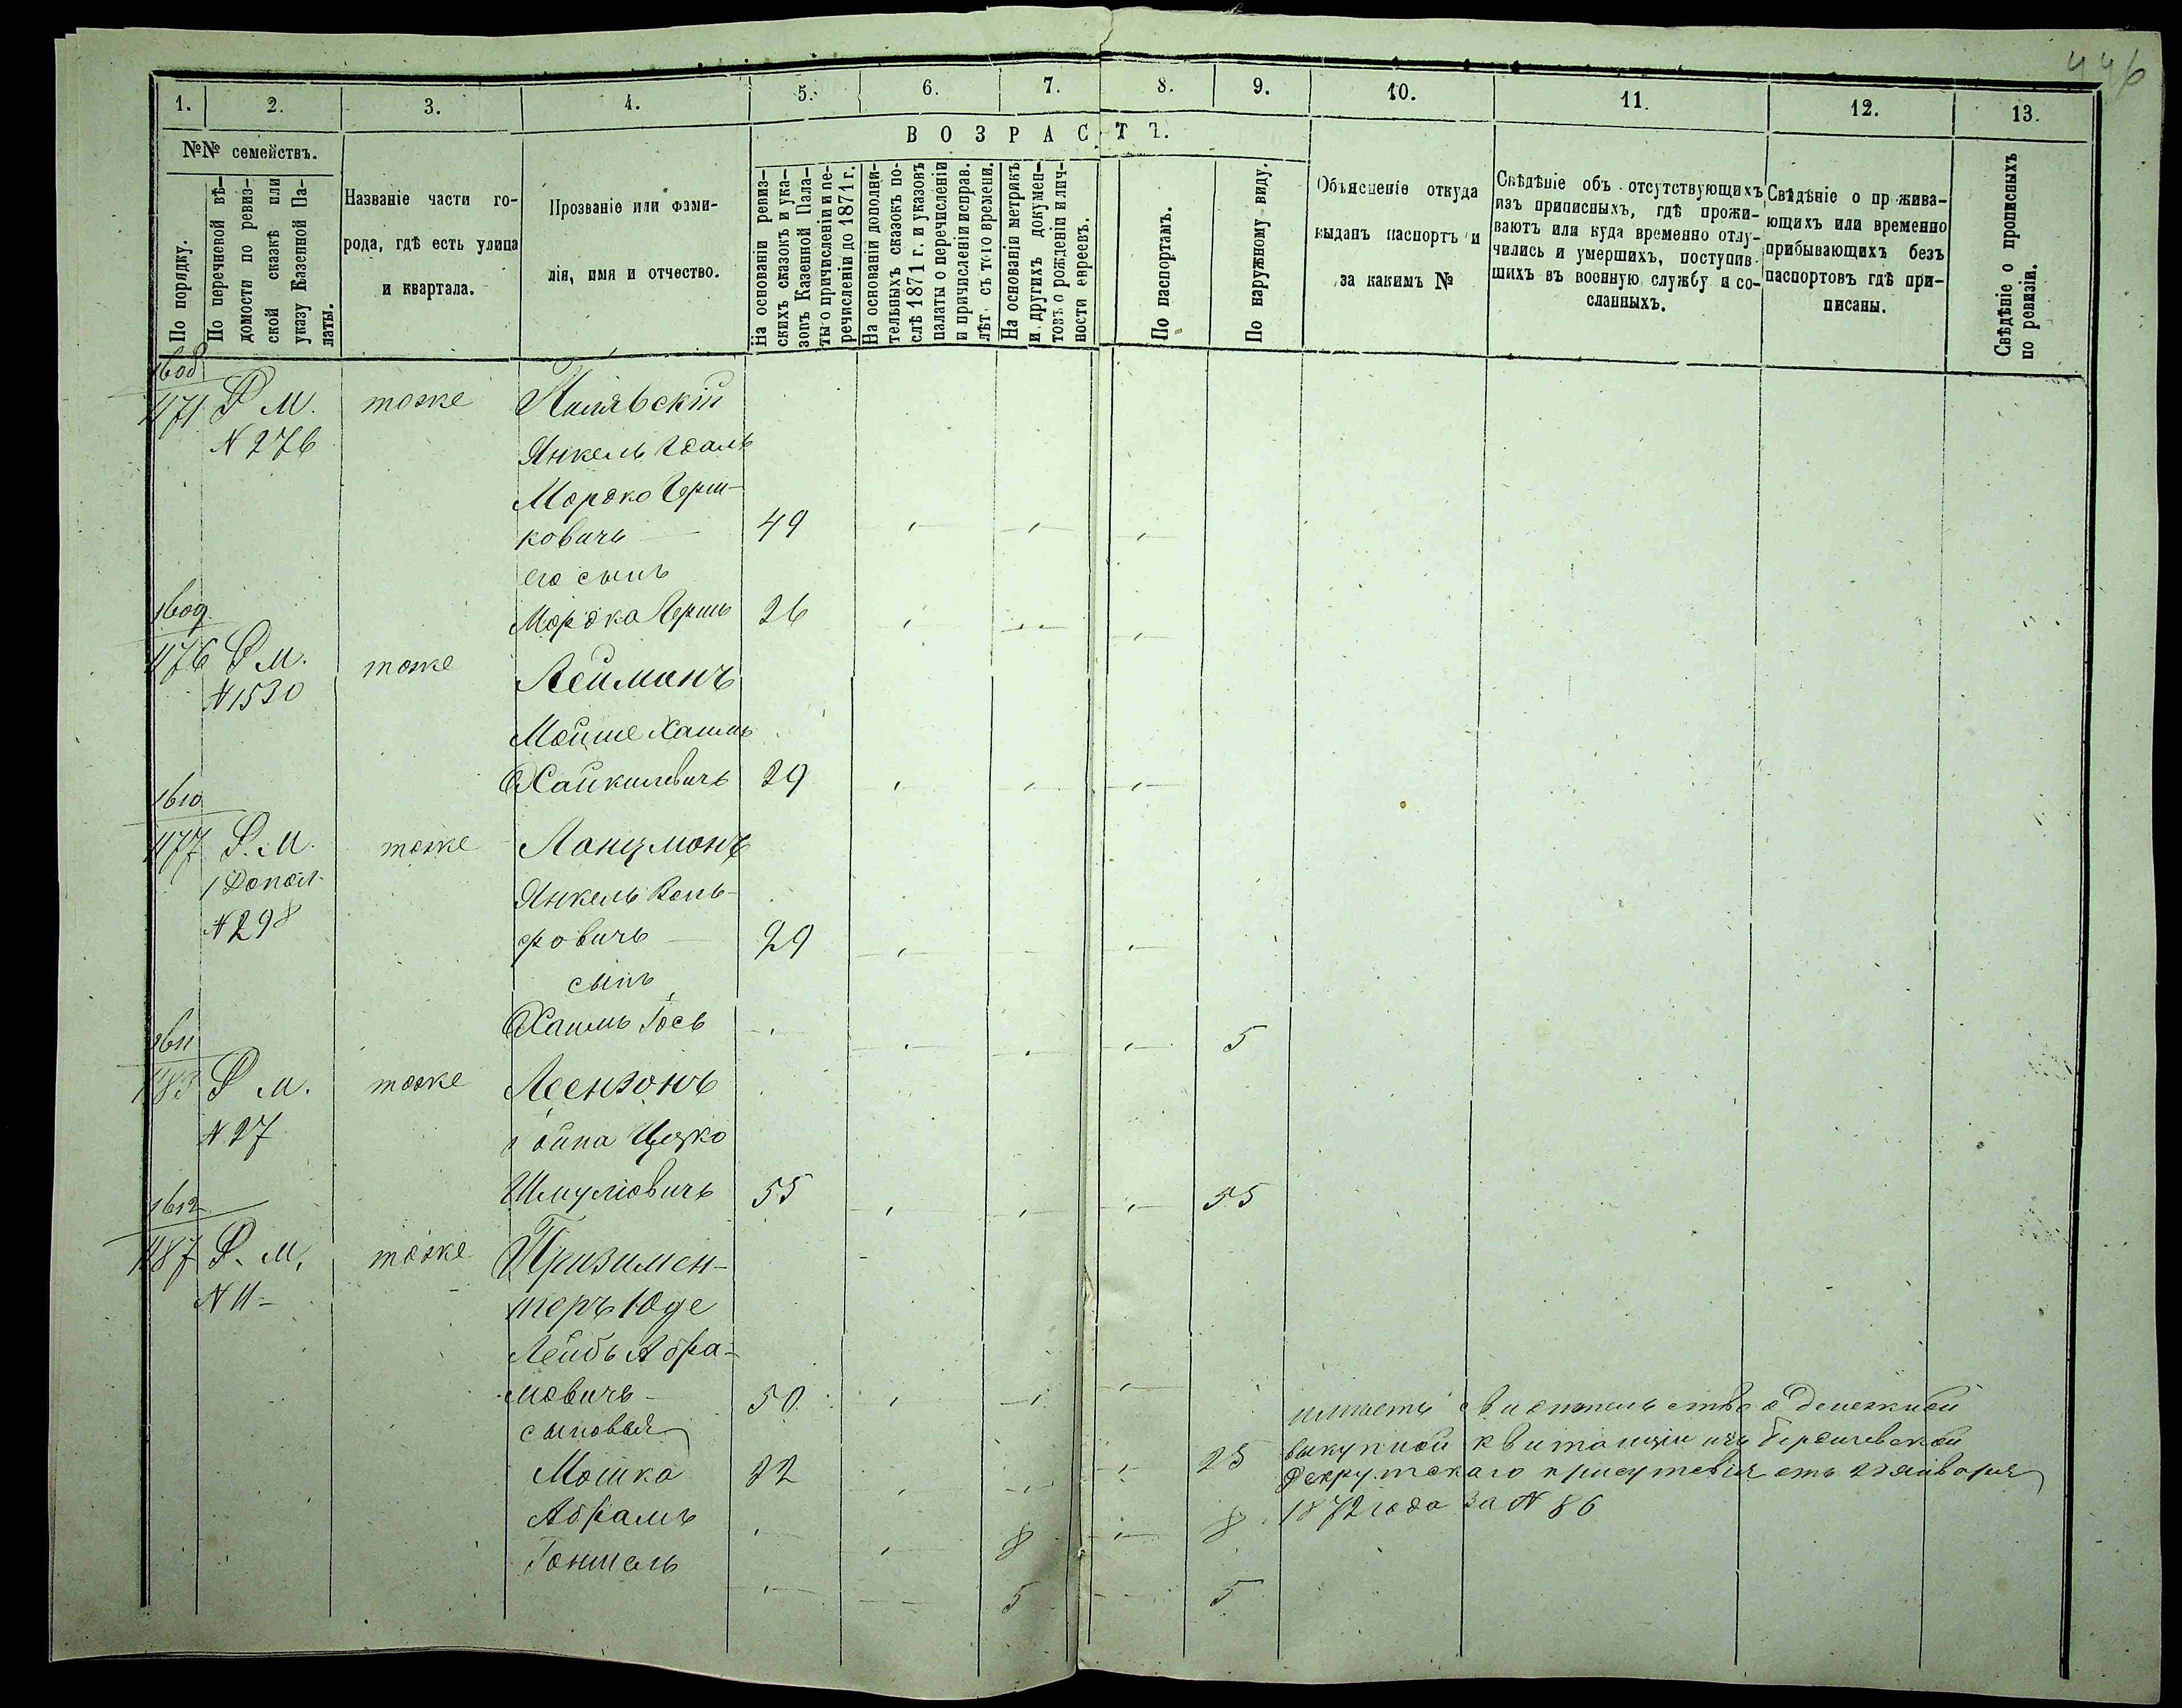 446
1. 2. 3. 4. 5. 6. 7. 8. 9. 10. 11. 12. 13.
№№ семействъ.
ВОЗРАСТЪ.
По порядку.
По перечневой вѣ-
домости по ревиз-
ской сказкѣ или
указу Казенной Па-
латы.
Названіе части го-
рода, гдѣ есть улица
и квартала.
Прозваніе или фами-
лія, имя и отчество.
На основаніи ревиз-
скихъ сказокъ и ука-
зовъ Казенной Пала-
ты о причисленіи и пе-
речисленіи до 1871 г.
На основаніи дополни-
тельныхъ сказокъ по-
слѣ 1871 г. и указовъ
палаты о перечисленіи
и причисленіи исправ.
лѣт. съ того времени.
На основаніи метрикъ
и другихъ докумен-
товъ о рожденіи и лич-
ности евреевъ.
По паспортамъ.
По наружному виду.
Объясненіе откуда
выданъ паспортъ и
за какимъ №
Свѣдѣніе объ отсутствующихъ
изъ приписныхъ, гдѣ прожи-
ваютъ или куда временно отлу-
чились и умершихъ, поступив-
шихъ въ военную службу и со-
сланныхъ.
Свѣдѣніе о прожива-
ющихъ или временно
прибывающихъ безъ
паспортовъ гдѣ при-
писаны.
Свѣдѣніе о прописныхъ
по ревизіи.
1608
471 Р М. тоже
N 276
Янкель
Мордко Герш-
ковичъ 49
его сынъ
Мордко Гершъ 26
1609
476 Р М. тоже Лейманъ
N 1530
Мойше Хаимъ
Хайкилевичъ 29
1610
477 Р. М. тоже Лонцмонъ
1 Допол.
Янкель Воль-
N 298
фовичъ 29
сынъ
Хаимъ Іосъ 5
1611
483 Р М. тоже Леензонъ
N 27
Іойна Ицко
Шмулювичъ 55 55
1612
487 Р. М. тоже Призимен-
N 11
теръ Юде
Лейбъ Абра-
мовичъ 50
имѣетъ свидѣтельство о денежной
сыновья
выкупной квитанціи изъ Бердичевской
Мошко 22 23
Рекрутскаго присутствія отъ 23 января
Абрамъ 8 8
1872 года за N 86
Гоншель 5 5